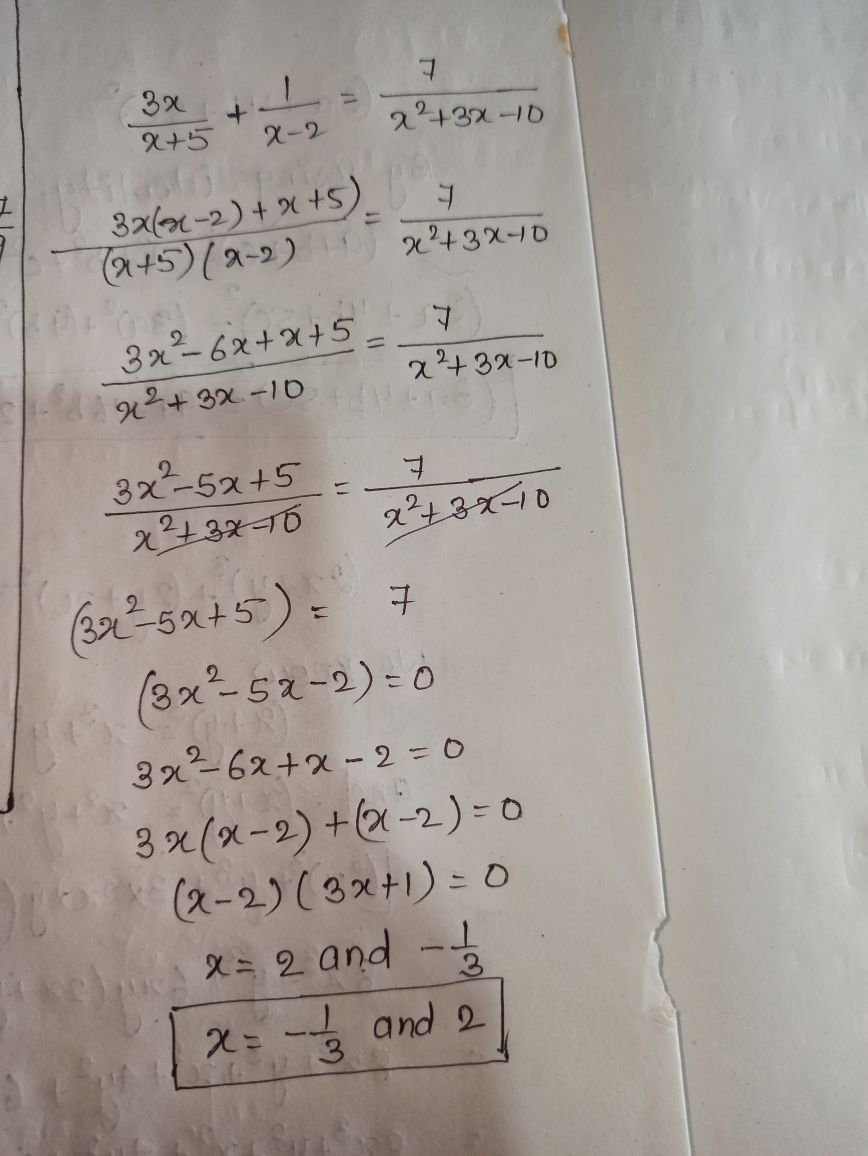 3x/(x+5) + 1/(x-2) = 7/(x²+3x-10)
(3x(x-2)+x+5))/((x+5)(x-2)) = 7/(x²+3x-10)
(3x²-6x+x+5)/(x²+3x-10) = 7/(x²+3x-10)
(3x²-5x+5)/(x²+3x-10) = 7/(x²+3x-10)
(3x²-5x+5) = 7
(3x²-5x-2)=0
3x²-6x+x-2=0
3x(x-2)+(x-2)=0
(x-2)(3x+1)=0
x=2 and -1/3
x= -1/3 and 2